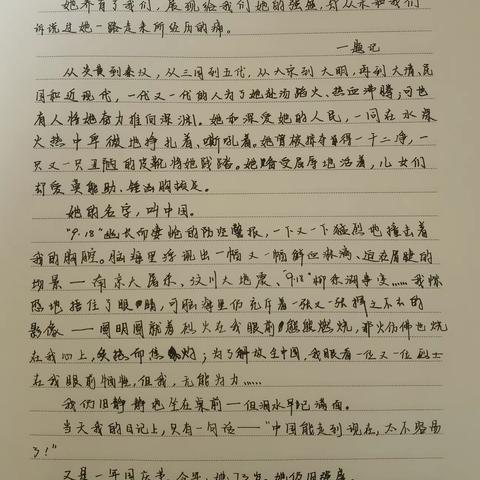 她养育了我们，展现给我们她的强盛，却从未和我们
诉说过她一路走来所经历的痛。
—题记
从炎黄到秦汉，从三国到五代，从大宋到大明，再到大清、民
国和近现代，一代又一代的人为了她赴汤蹈火、热血沸腾；可也
有人将她奋力推向深渊。她和深爱她的人民，一同在水深
火热中卑微地挣扎着、嘶吼着。她曾被掠夺得一干二净，一
只又一只丑陋的皮靴将她践踏。她踏受屈辱地活着，儿女们
却爱莫能助、锥凶胸拔足。
她的名字，叫中国。
“9·18”幽长而凄婉的防空警报，一下又一下猛烈地撞击着
我的胸腔。脑海里浮现出一幅又一幅鲜血淋漓、迫在眉睫的
场景——南京大屠杀、汶川大地震、“9·18”柳条湖事变……我惊
恐地捂住了眼睛，可脑海里仍充斥着一张又一张挥之不去的
影像——圆明园就着烈火在我眼前熊熊燃烧，那火仿佛也烧
在我心上，炙热而焦灼；为了解放全中国，我眼看一位又一位烈士
在我眼前牺牲，但我，无能为力……
我们旧静静地坐在桌前——但泪水早已满面。
当天我的日记上，只有一句话——“中国能走到现在，太不容易
了！”
又是一年国庆节，今年，她73岁。她仍旧强盛，